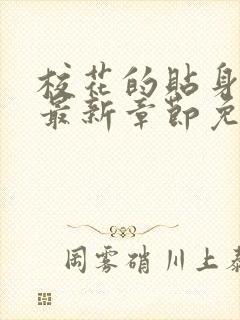 校花的贴身
最新章节免
周雾硝川上